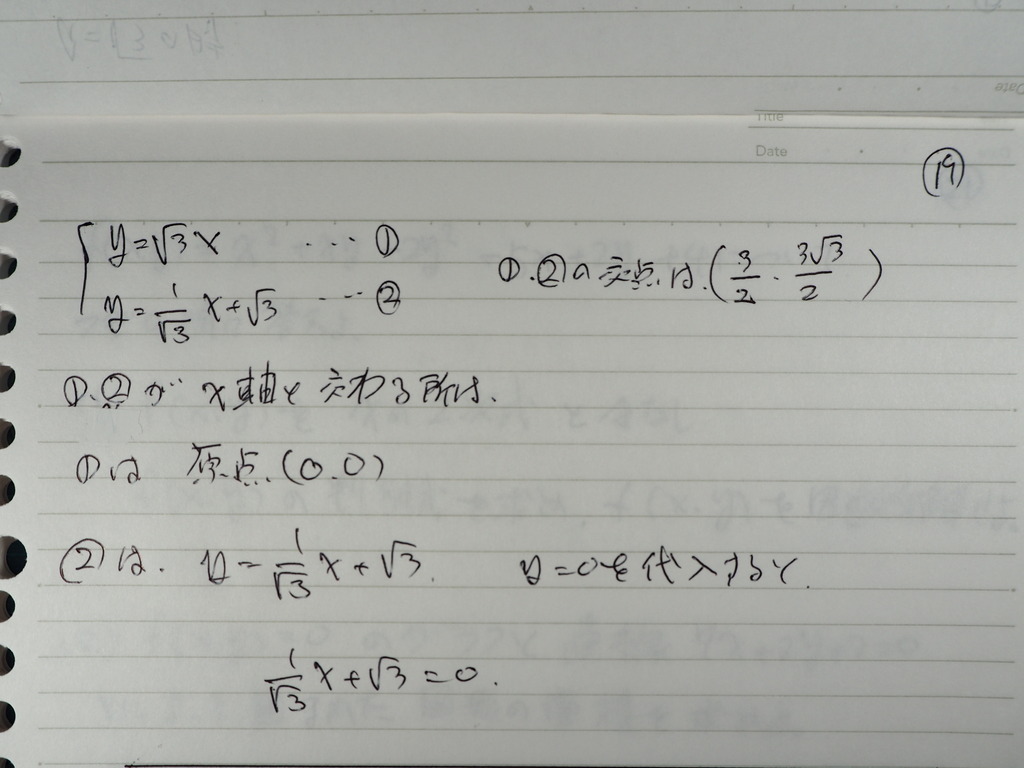 Title
Date
⑲
y=√3x ... ①
y=1/√3 x+√3 ... ②
①.②の交点は.(3/2 . 3√3/2)
①.②が x軸と交わる所は.
①は 原点(0.0)
②は. y=1/√3 x+√3. y=0を代入すると.
1/√3 x+√3=0.